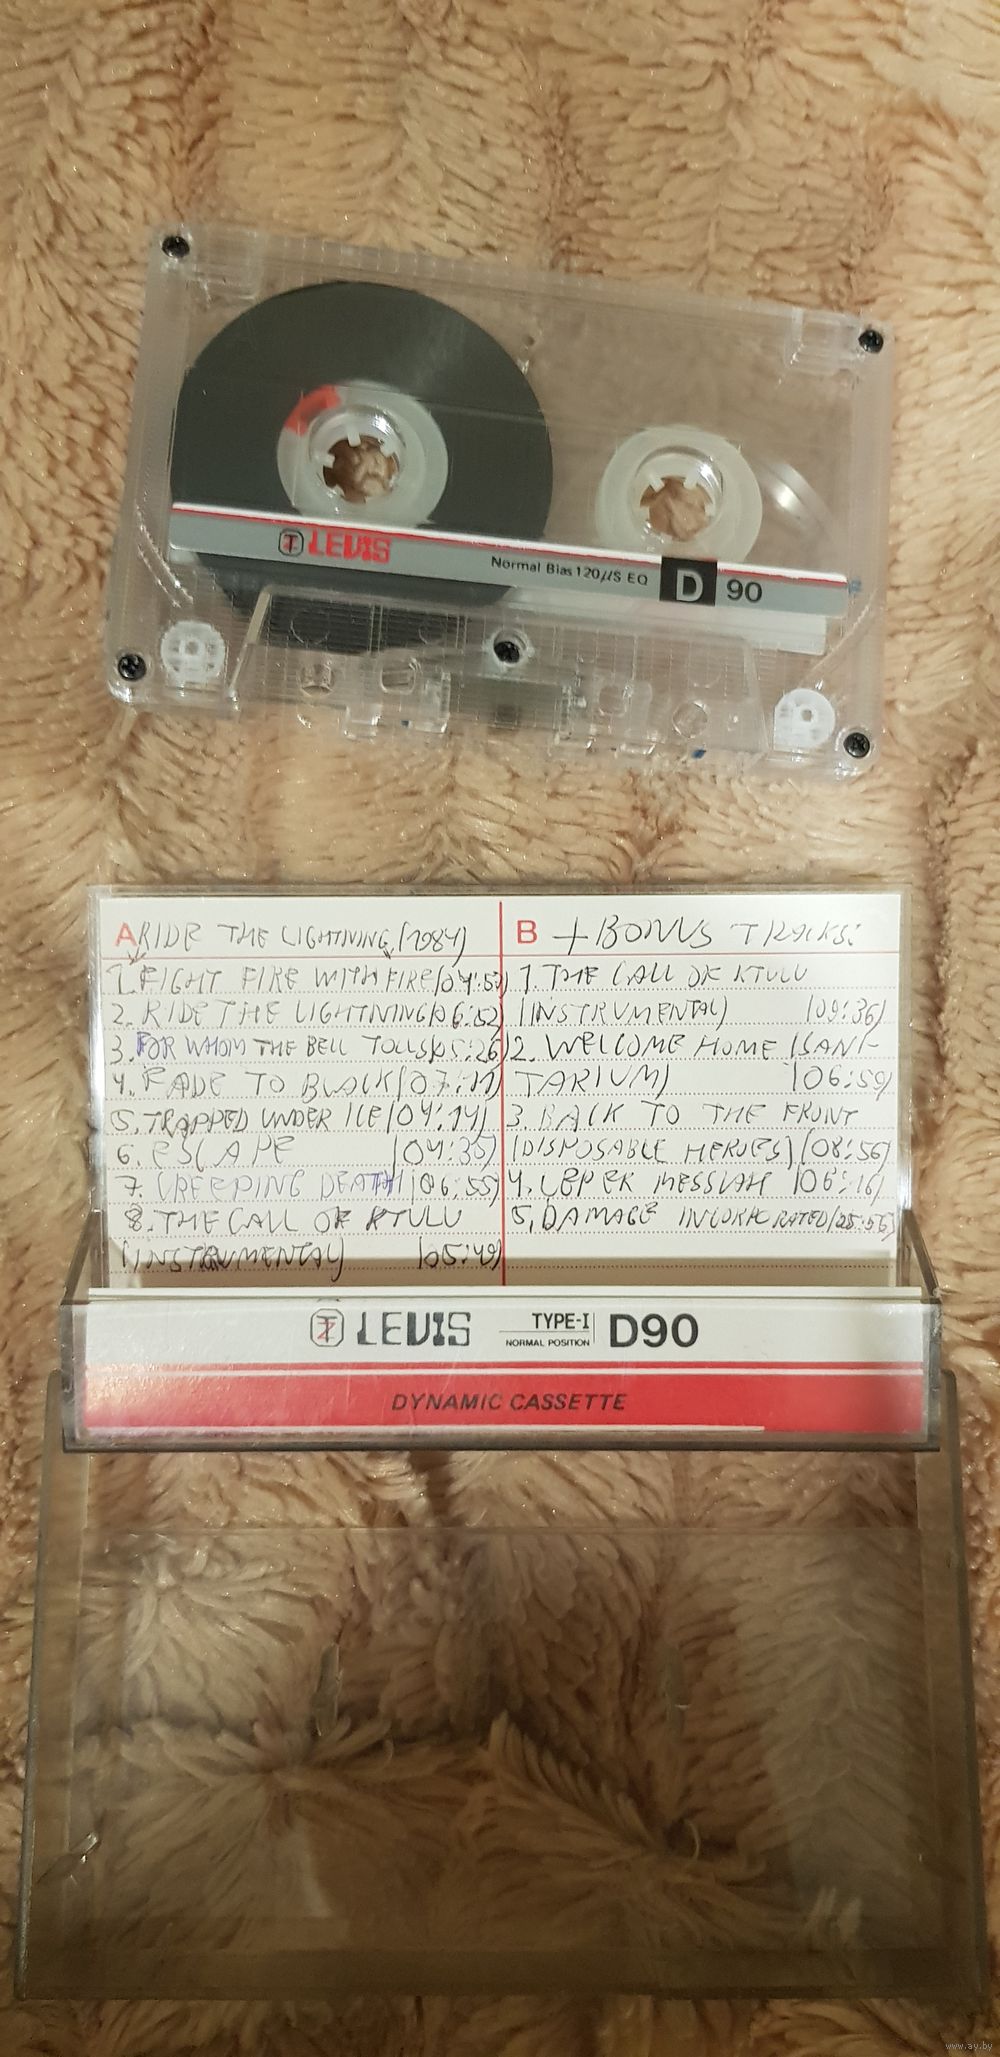 LEVIS
Normal Bias 120µS EQ D 90
A RIDE THE LIGHTNING (1984)
1. FIGHT FIRE WITH FIRE (04:52)
2. RIDE THE LIGHTNING (06:52)
3. FOR WHOM THE BELL TOLLS (05:26)
4. FADE TO BLACK (07:11)
5. TRAPPED UNDER ICE (04:14)
6. ESCAPE (04:35)
7. CREEPING DEATH (06:55)
8. THE CALL OF KTULU
(INSTRUMENTAL) (05:49)
B + BONUS TRACKS:
1. THE CALL OF KTULU
(INSTRUMENTAL) (09:36)
2. WELCOME HOME (SANI-
TARIUM) (06:59)
3. BACK TO THE FRONT
(DISPOSABLE HEROES) (08:56)
4. LEPER MESSIAH (06:16)
5. DAMAGE INCORPORATED
LEVIS TYPE-I D90
NORMAL POSITION
DYNAMIC CASSETTE
www.ay.by